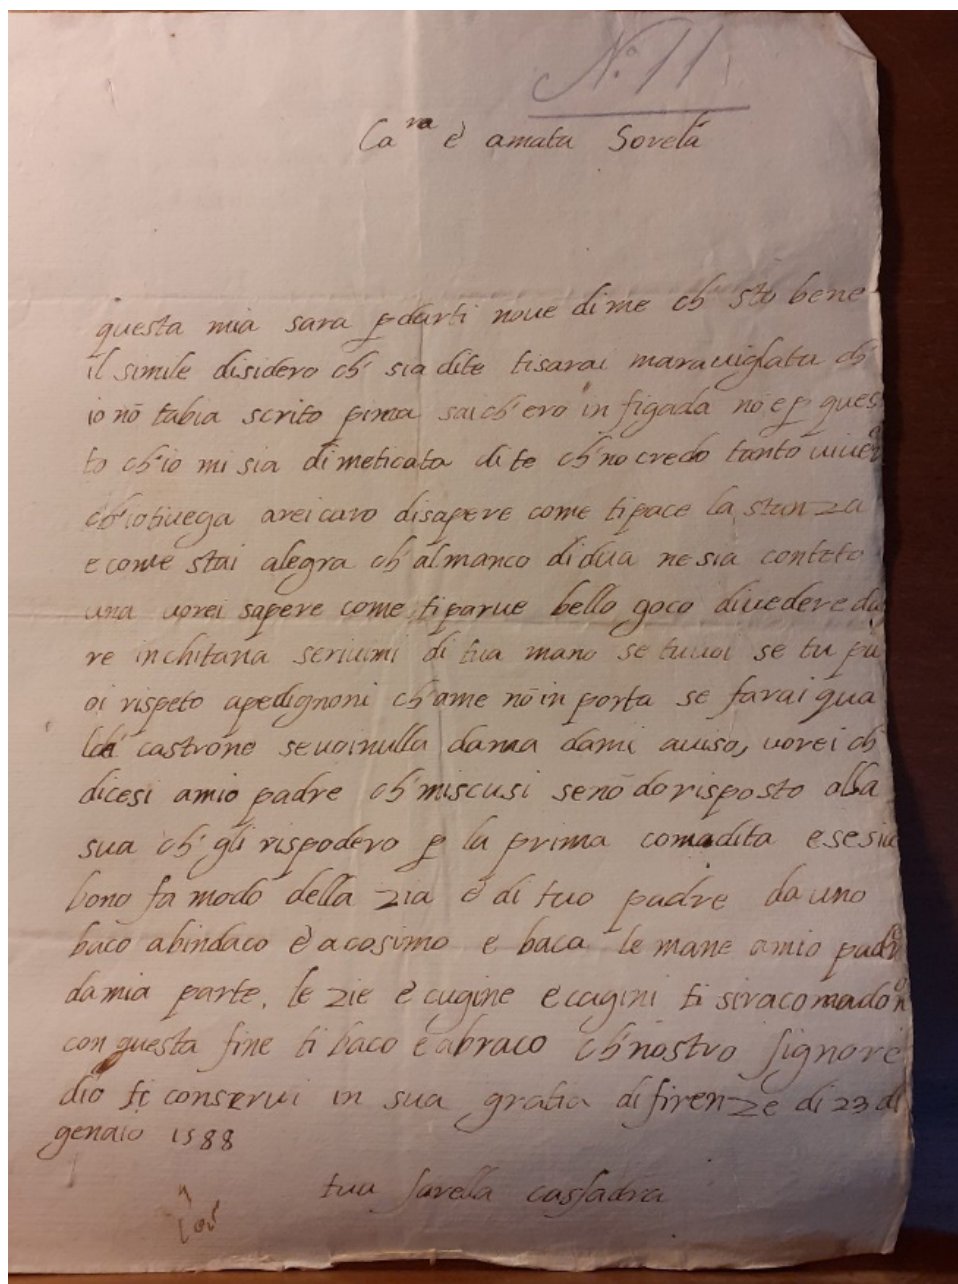 N.° 11
Ca^ra è amata Sorela
questa mia sara p darti nove di me ch' sto bene
il simile disidero ch' sia dite tisarai maravigliata ch'
io nō tabia scrito pima sai ch'ero in figada nō e p ques
to ch'io mi sia dimeticata di te ch'no credo tanto viver
ch'iotivega areicaro disapere come tipace la stanza
e come stai alegra ch' almanco di dua ne sia conteto
una vorei sapere come tiparve bello goco divedere da
re inchitana serivimi di tua mano se tuvoi se tu pu
oi rispeto apedignoni ch'ame nō in porta se farai qua
lche castrone sevoinulla dama dami aviso, vorei ch'
dicesi amio padre ch'miscusi senō dorisposto alla
sua ch' gli rispodero p la prima comadita e se sia
bono fa modo della zia è di tuo padre da uno
baco abindaco è acosimo e baca le mane amio padre
da mia parte. le zie è cugine e cugini ti siracomadon
con questa fine ti baco e abraco ch'nostro signore
dio ti conservi in sua gratia di firenze di 23 di
genaio 1588
tua sorella cassadra